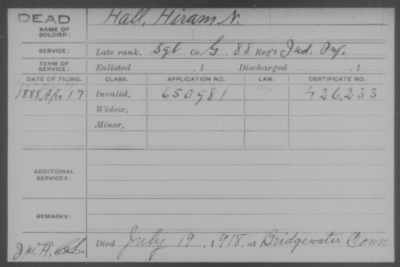 DEAD
NAME OF SOLDIER: Hall, Hiram N.
SERVICE: Late rank, Sgt Co. G, 88 Reg't Ind. Inf.
TERM OF SERVICE: Enlisted , 1 Discharged , 1
DATE OF FILING. CLASS. APPLICATION NO. LAW CERTIFICATE NO.
1888 Apr 17 Invalid, 650981 426233
Widow,
Minor,
ADDITIONAL SERVICES:
REMARKS:
Died July 19, 1918, at Bridgewater Conn